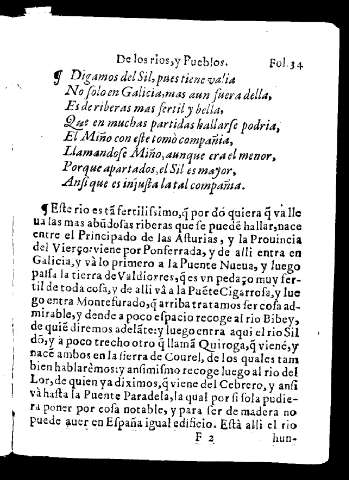 De los rios, y Pueblos. Fol. 34
¶ Digamos del Sil, pues tiene valia
No solo en Galicia, mas aun fuera della,
Es de riberas mas fertil y bella,
Que en muchas partidas hallarse podria,
El Miño con este tomò compañia,
Llamandose Miño, aunque era el menor,
Porque apartados, el Sil es mayor,
Ansi que es injusta la tal compañia.
¶ Este rio es tã fertilissimo, q̃ por dó quiera q̃ và lle
ua las mas abũdosas riberas que se puedẽ hallar, nace
entre el Principado de las Asturias, y la Prouincia
del Vierço: viene por Ponferrada, y de alli entra en
Galicia, y và lo primero a la Puente Nueua, y luego
passa la tierra de Valdiorres, q̃ es vn pedaço muy fer-
til de toda cosa, y de alli và a la Puẽte Cigarrosa, y lue
go entra Montefurado, q̃ arriba tratamos ser cosa ad-
mirable, y dende a poco espacio recoge al rio Bibey,
de quiẽ diremos adelãte: y luego entra aqui el rio Sil
dõ, y a poco trecho otro q̃ llamã Quiroga, q̃ viene, y
nacẽ ambos en la sierra de Courel, de los quales tam
bien hablarèmos: y ansimismo recoge luego al rio del
Lor, de quien ya diximos, q̃ viene del Cebrero, y ansi
và hasta la Puente Paradela, la qual por si sola pudie-
ra poner por cosa notable, y para ser de madera no
puede auer en España igual edificio. Està alli el rio
F 2 hun-